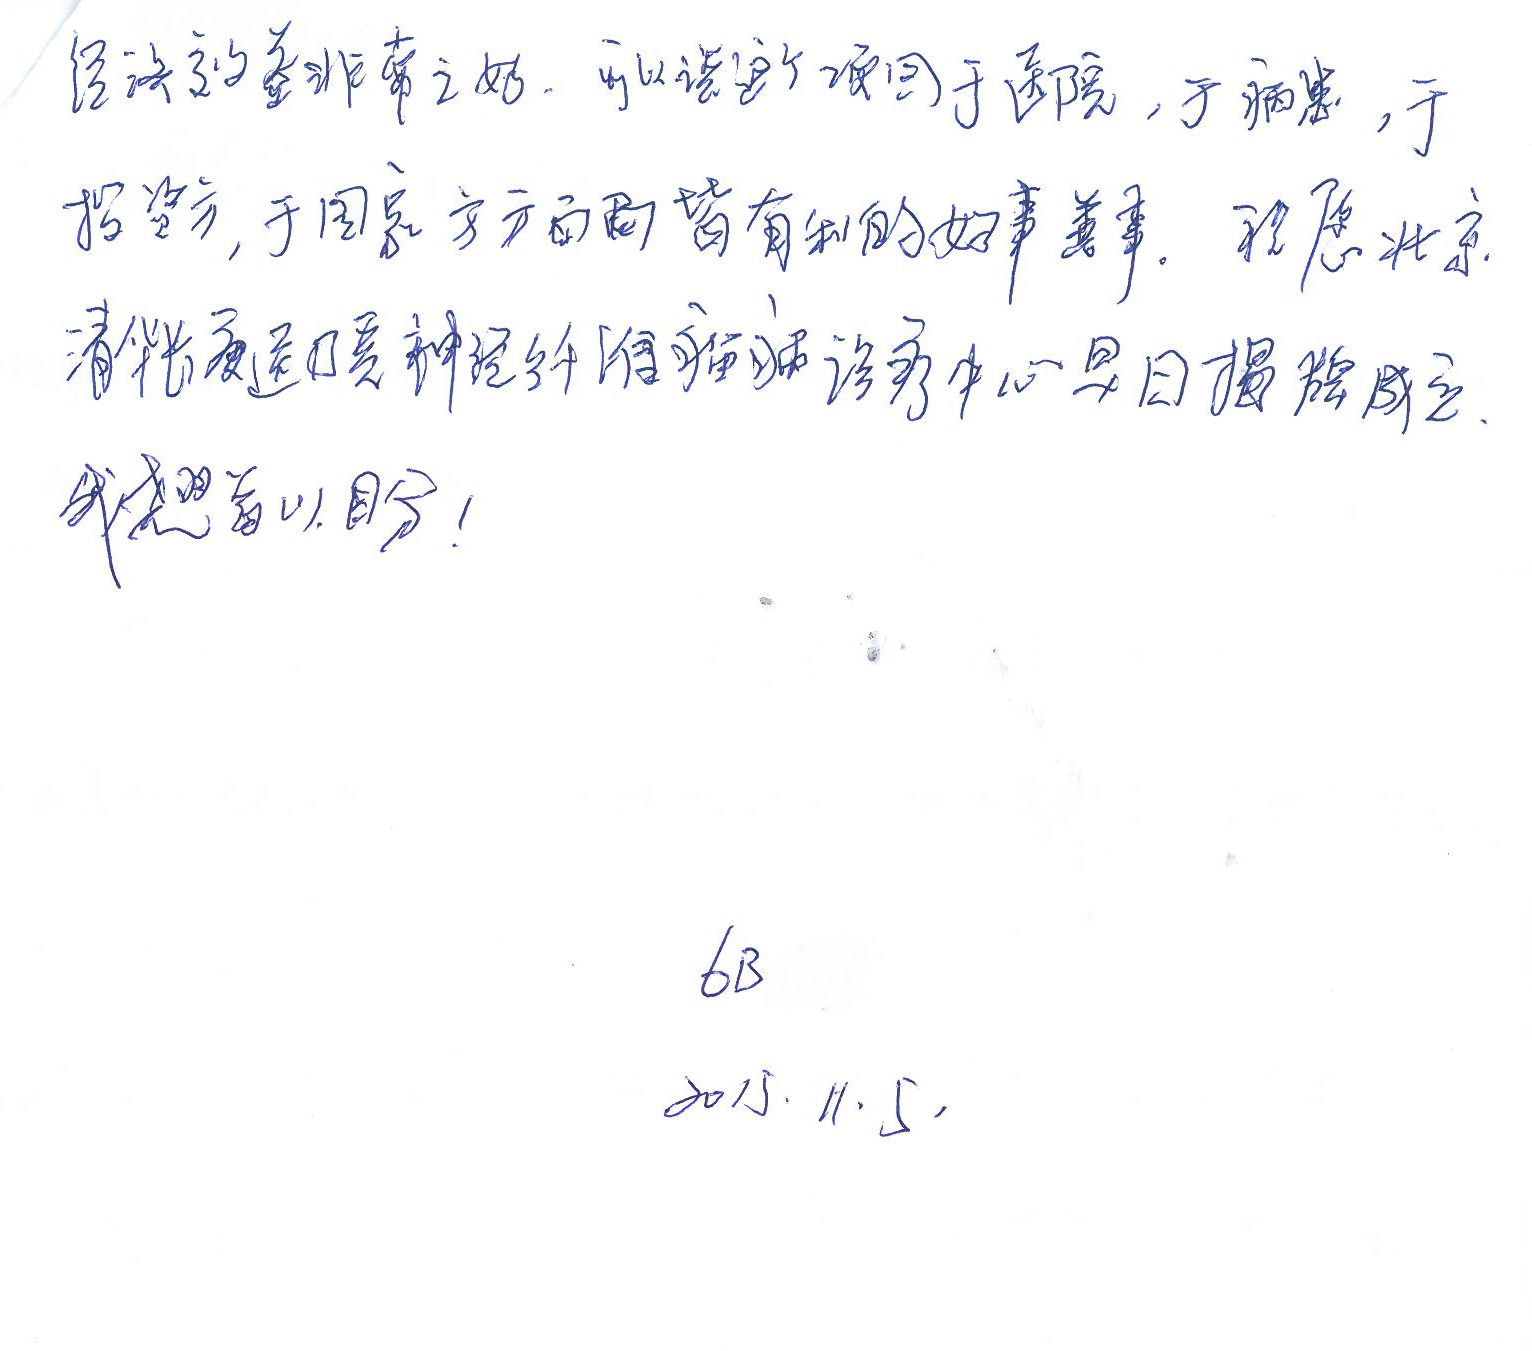 经济效益非常之好.可以说这个项目于医院,于病患,于
投资方,于国家方方面面皆有利的好事善事。祝愿北京
清华长庚遗传暨神经纤维瘤病诊疗中心早日揭牌成立.
我想当以自等!
6B
2015.11.5,